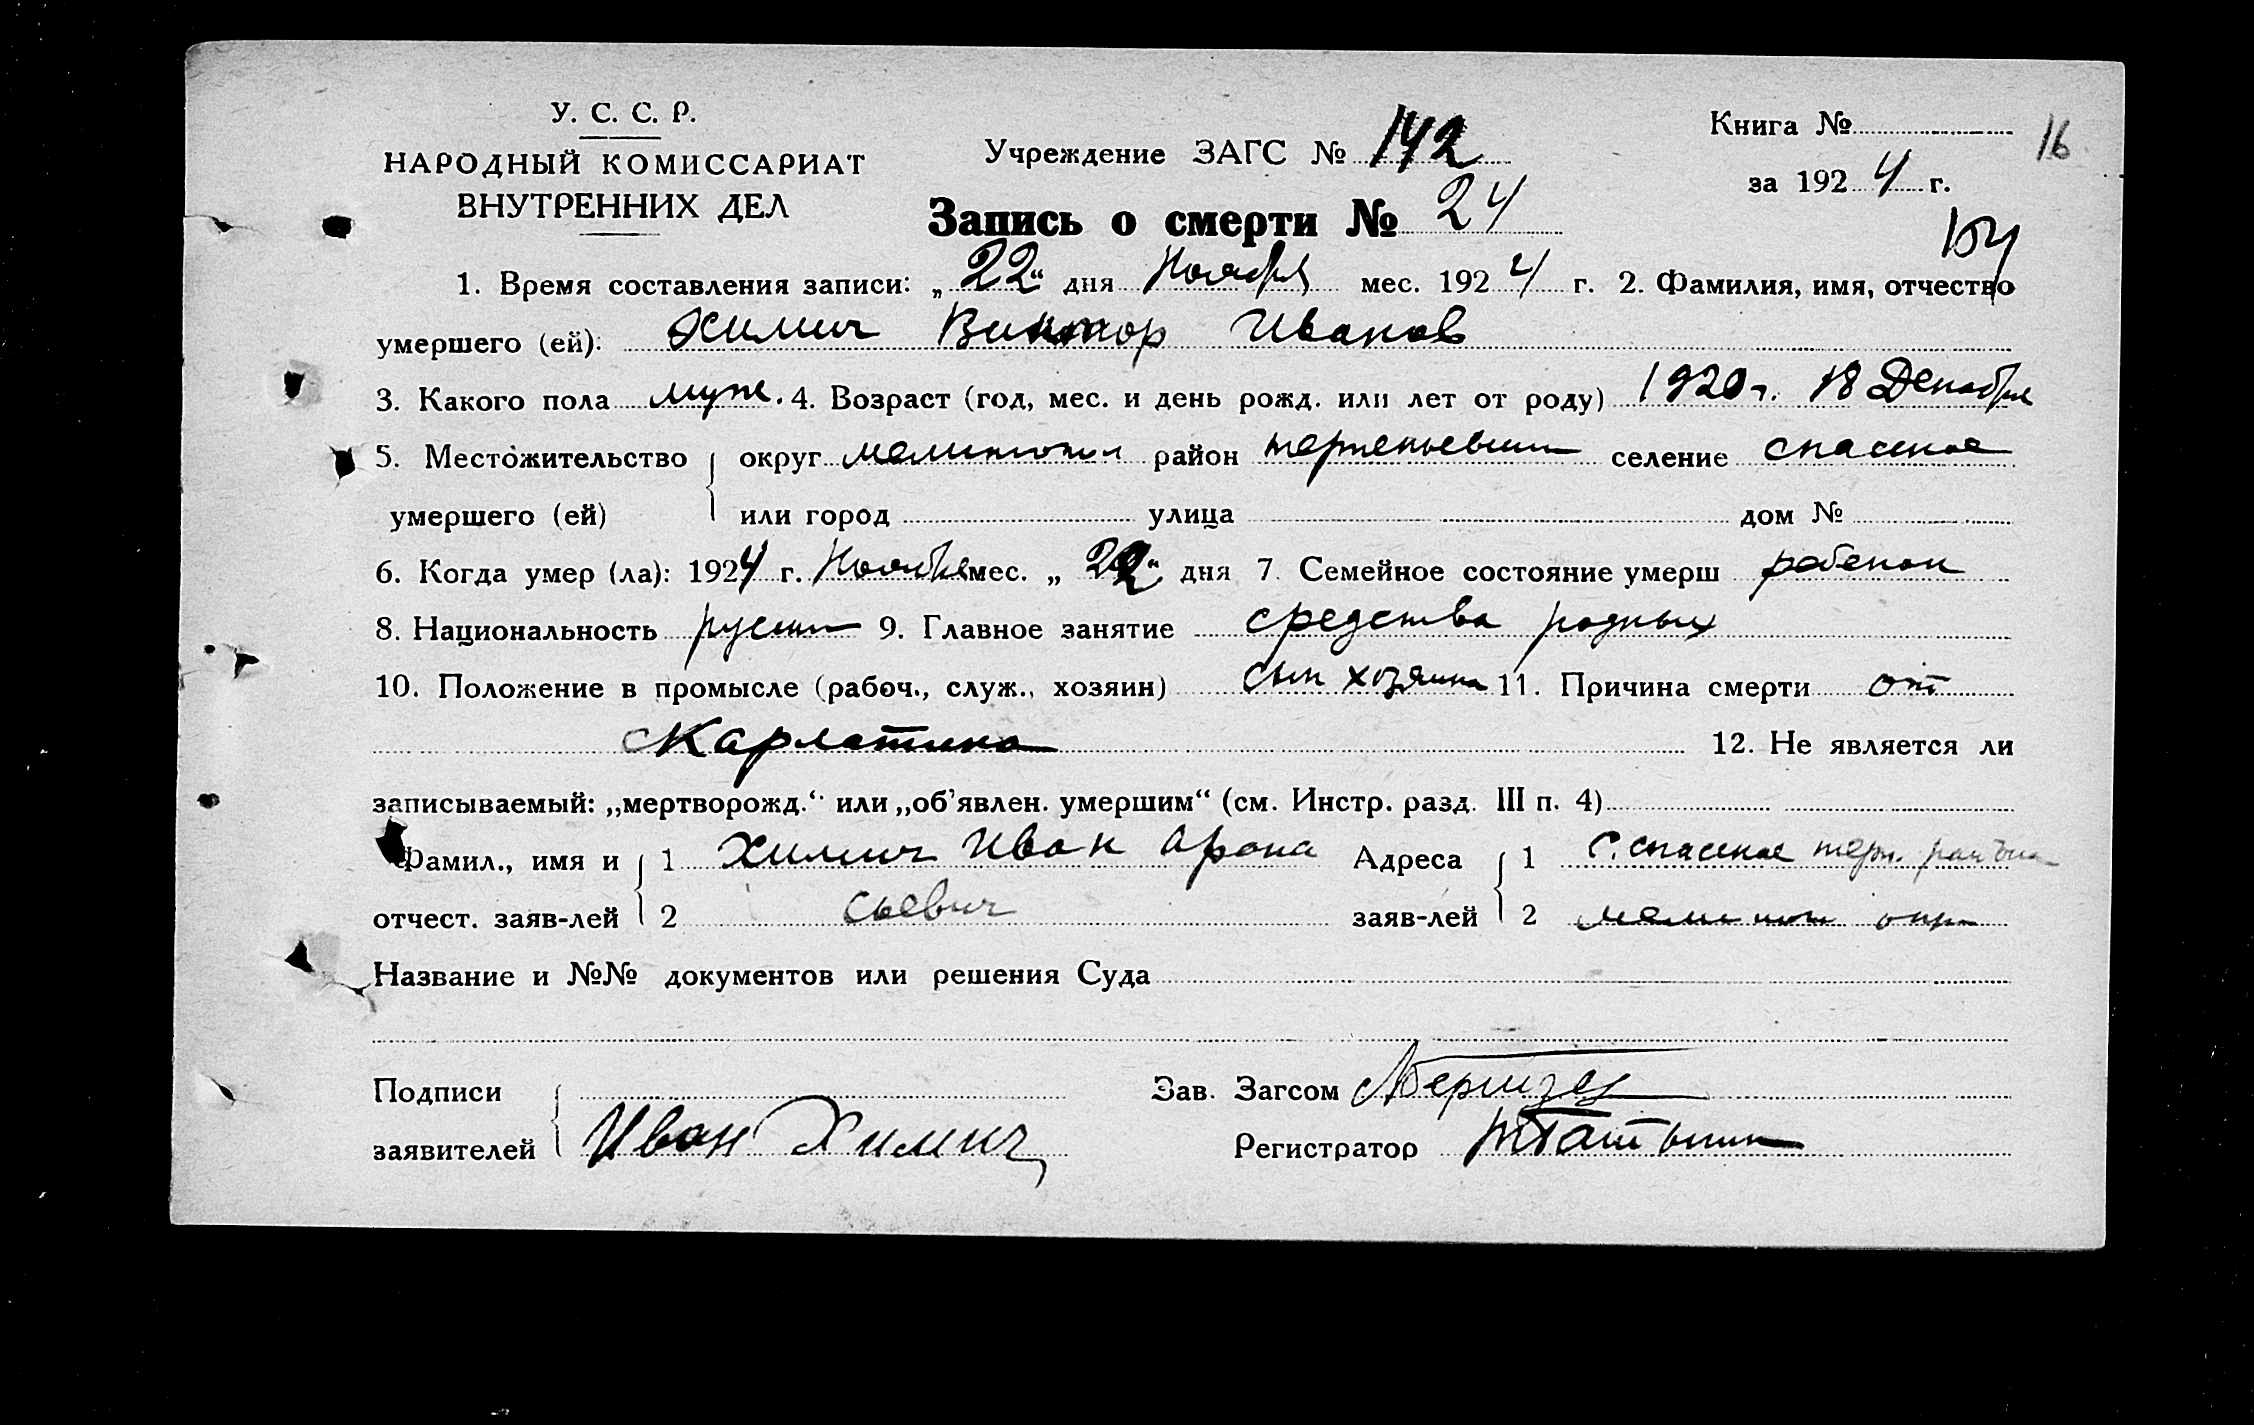 У. С. С. Р.
НАРОДНЫЙ КОМИССАРИАТ
ВНУТРЕННИХ ДЕЛ
Учреждение ЗАГС № 142
Книга №
16
за 1924 г.
Запись о смерти № 24
154
1. Время составления записи: „22“ дня Ноября мес. 1924 г. 2. Фамилия, имя, отчество
умершего (ей): Химич Виктор Иванов
3. Какого пола муж. 4. Возраст (год, мес. и день рожд. или лет от роду) 1920 г. 18 Декабря
5. Местожительство округ мелитопол район терпеньевский селение спасское
умершего (ей) или город улица дом №
6. Когда умер (ла): 1924 г. Ноября мес. „22“ дня 7. Семейное состояние умерш ребенок
8. Национальность русский 9. Главное занятие средства родных
10. Положение в промысле (рабоч., служ., хозяин) сын хозяина 11. Причина смерти от
скарлатина 12. Не является ли
записываемый: „мертворожд.“ или „об'явлен. умершим“ (см. Инстр. разд. III п. 4)
Фамил., имя и 1 Химич Иван Арона Адреса 1 с. спасское терп. района
отчест. заяв-лей 2 сьевич заяв-лей 2 мелитоп окр
Название и №№ документов или решения Суда
Подписи Зав. Загсом
заявителей Иван Химич Регистратор